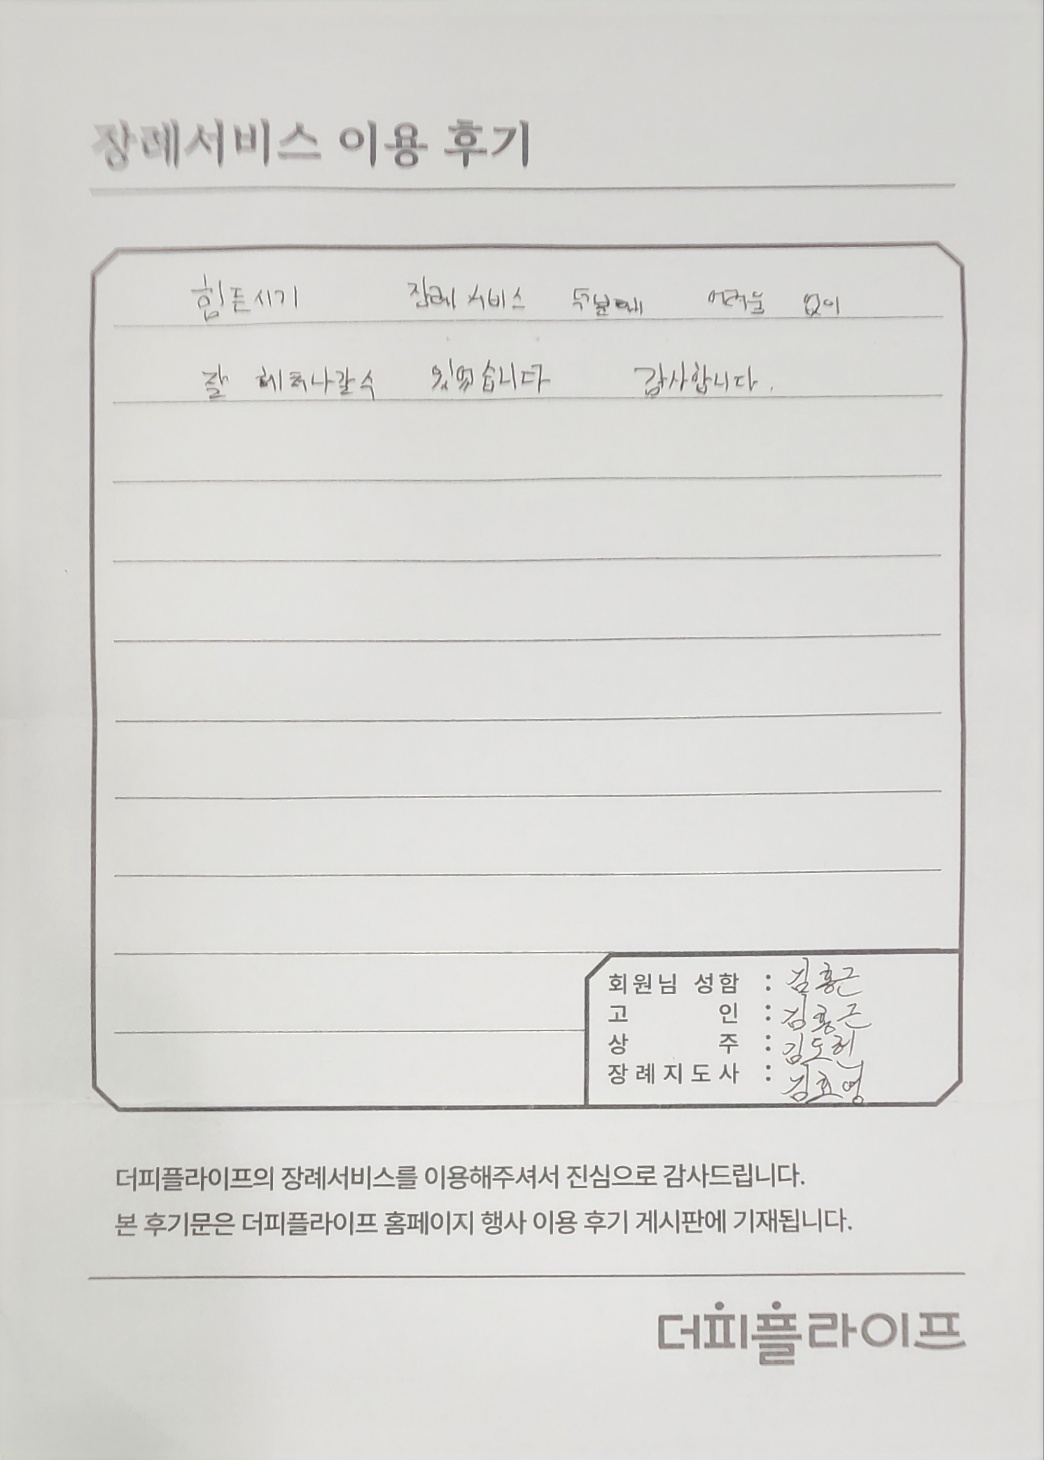 장례서비스 이용 후기
힘든시기 장례 서비스 득분에 어려움 없이
잘 헤쳐나갈수 있었습니다 감사합니다.
회원님 성함 : 김홍근
고 인 : 김홍근
상 주 : 김도헌
장례지도사 : 김효영
더피플라이프의 장례서비스를 이용해주셔서 진심으로 감사드립니다.
본 후기문은 더피플라이프 홈페이지 행사 이용 후기 게시판에 기재됩니다.
더피플라이프